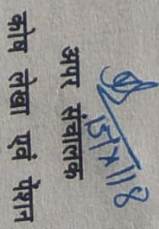 15/7/18
अपर संचालक
कोष लेखा एवं पेंशन